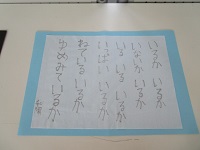 いるか いるか
いないか いるか
いる いる いるか
いっぱい いるか
ねているいるか
ゆめみているか